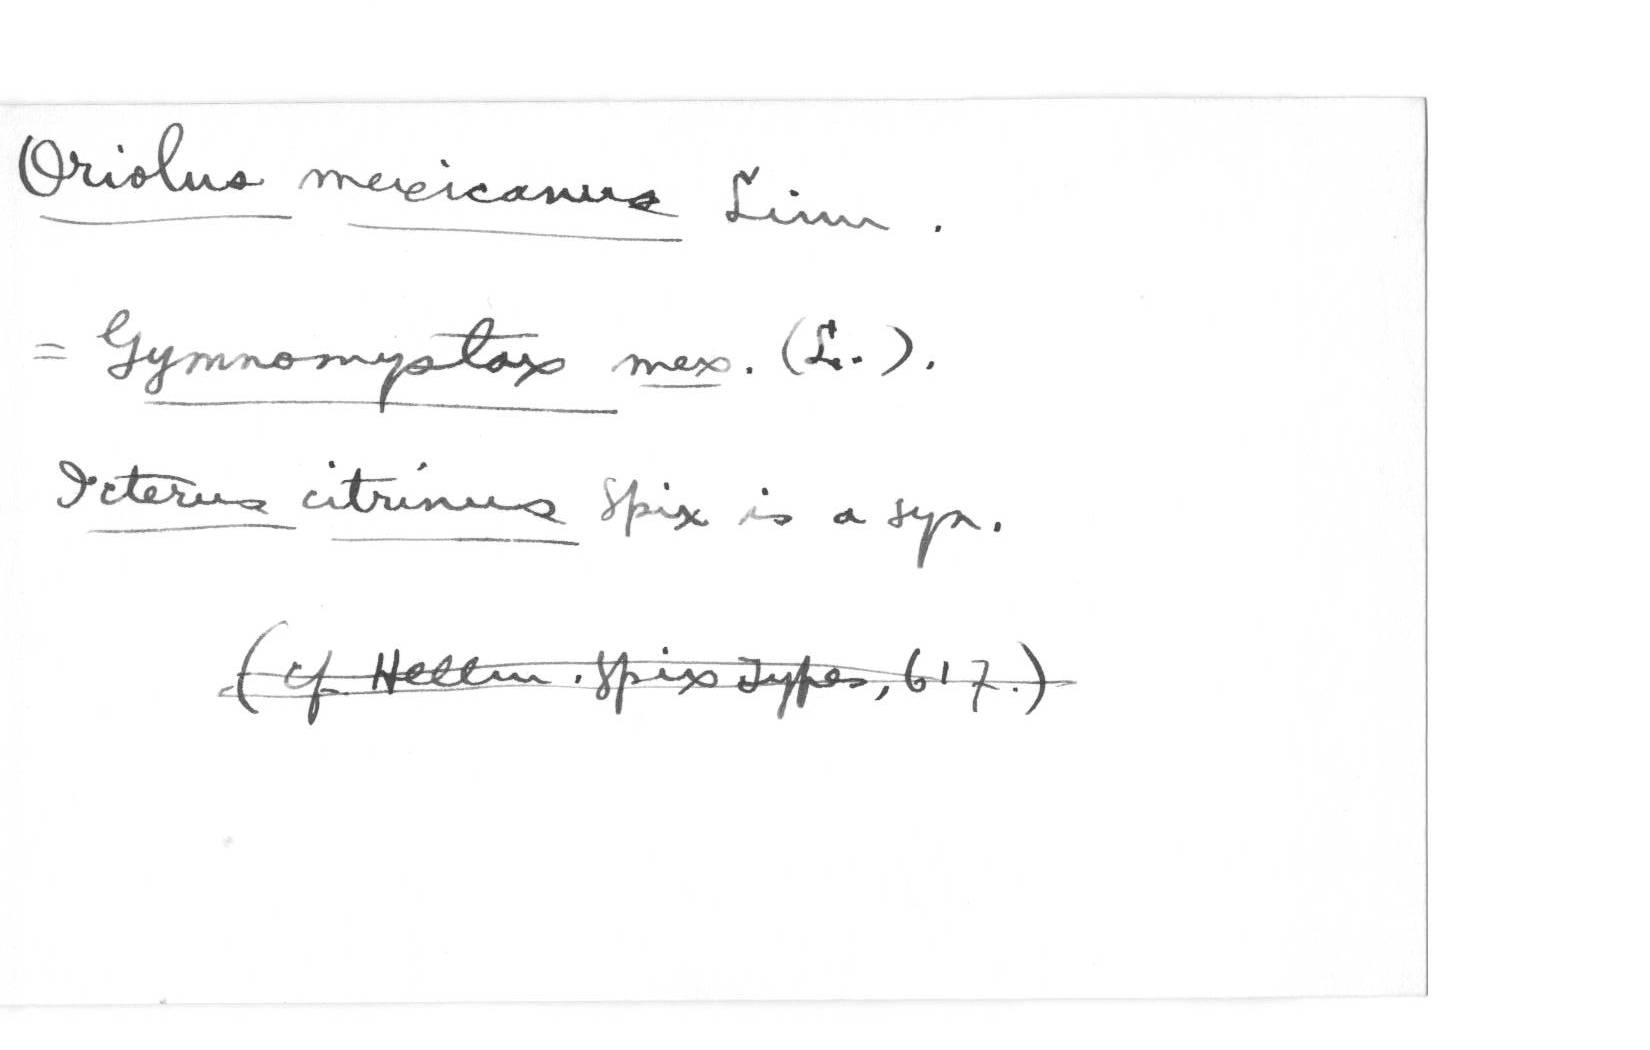 Oriolus mexicanus Linn.
= Gymnomystax mex. (L.).
Icterus citrinus Spix is a syn.
(cf. Hellm. Spix Types, 617.)